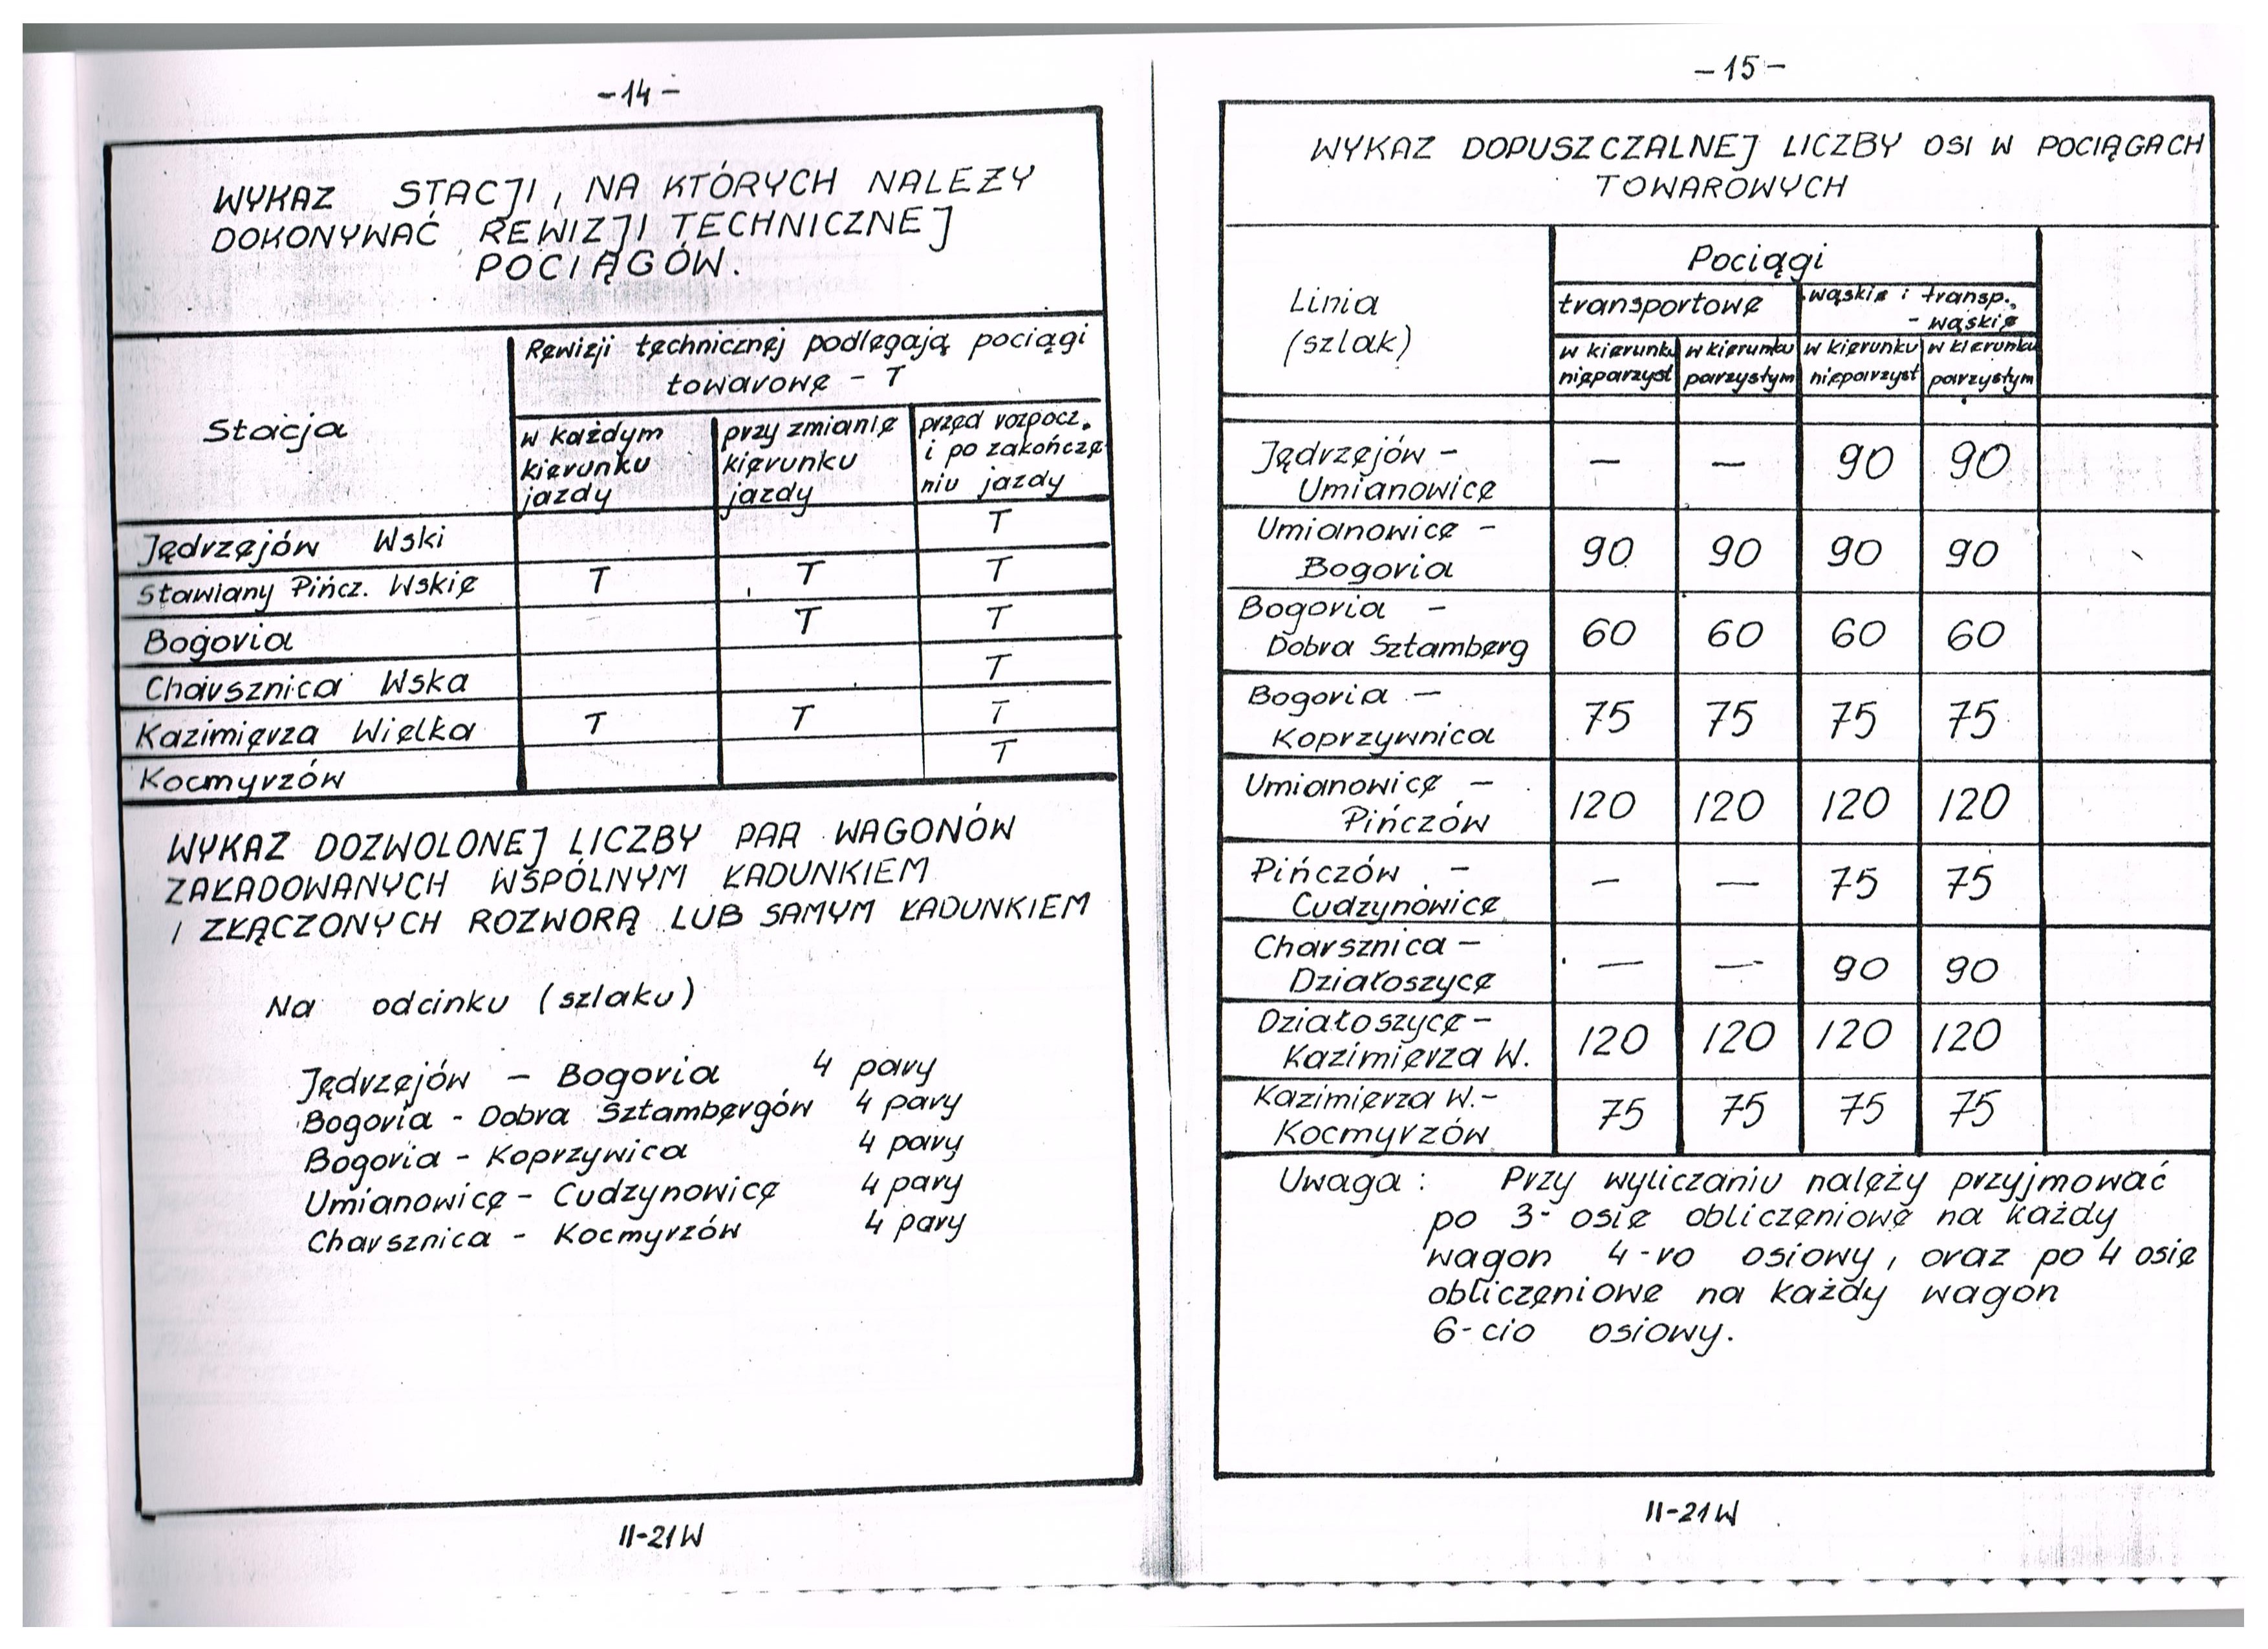 -14-
WYKAZ STACJI, NA KTÓRYCH NALEŻY
DOKONYWAĆ REWIZJI TECHNICZNEJ
POCIĄGÓW.
Stacja
Rewizji technicznej podlegają pociągi
towarowe - T
w każdym kierunku jazdy
przy zmianie kierunku jazdy
przed rozpocz. i po zakończeniu jazdy
Jędrzejów Wski T
Stawiany Pińcz. Wskie T T T
Bogoria T T
Charsznica Wska T
Kazimierza Wielka T T T
Kocmyrzów T
WYKAZ DOZWOLONEJ LICZBY PAR WAGONÓW
ZAŁADOWANYCH WSPÓLNYM ŁADUNKIEM
I ZŁĄCZONYCH ROZWORĄ LUB SAMYM ŁADUNKIEM
Na odcinku (szlaku)
Jędrzejów - Bogoria 4 pary
Bogoria - Dobra Sztambergów 4 pary
Bogoria - Koprzywica 4 pary
Umianowice - Cudzynowice 4 pary
Charsznica - Kocmyrzów 4 pary
II-21W
-15-
WYKAZ DOPUSZCZALNEJ LICZBY OSI W POCIĄGACH
TOWAROWYCH
Linia
(szlak)
Pociągi
transportowe
wąskie i transp.
- wąskie
w kierunku nieparzyst
w kierunku parzystym
w kierunku nieparzyst
w kierunku parzystym
Jędrzejów -
Umianowice — — 90 90
Umianowice -
Bogoria 90 90 90 90
Bogoria -
Dobra Sztamberg 60 60 60 60
Bogoria -
Koprzywnica 75 75 75 75
Umianowice -
Pińczów 120 120 120 120
Pińczów -
Cudzynowice — — 75 75
Charsznica -
Działoszyce — — 90 90
Działoszyce -
Kazimierza W. 120 120 120 120
Kazimierza W.-
Kocmyrzów 75 75 75 75
Uwaga : Przy wyliczaniu należy przyjmować
po 3- osie obliczeniowe na każdy
wagon 4-ro osiowy, oraz po 4 osie
obliczeniowe na każdy wagon
6-cio osiowy.
II-21W